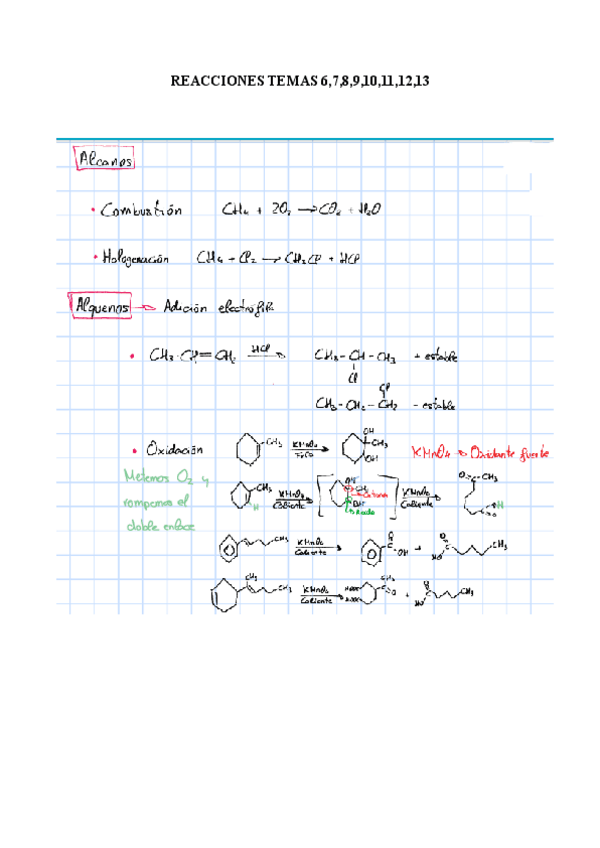 REACCIONES TEMAS 6,7,8,9,10,11,12,13
Alcanos
• Combustión CH₄ + 2O₂ → CO₂ + H₂O
• Halogenación CH₄ + Cl₂ → CH₃Cl + HCl
Alquenos → Adición electrófila
• CH₃-CH=CH₂ HCl → CH₃-CH-CH₃ + estable
Cl
Cl
CH₃-CH₂-CH₂ - estable
• Oxidación CH₃ KMnO₄ Frío OH CH₃ OH KMnO₄ → Oxidante fuerte
Metemos O₂ y
rompemos el
doble enlace
CH₃ H KMnO₄ Caliente OH CH₃ Cetona OH KMnO₄ Caliente O CH₃ H O
CH₃ KMnO₄ Caliente O OH + O HO CH₃
CH₃ CH₃ KMnO₄ Caliente HOOC HOOC CH₃ O + O HO CH₃